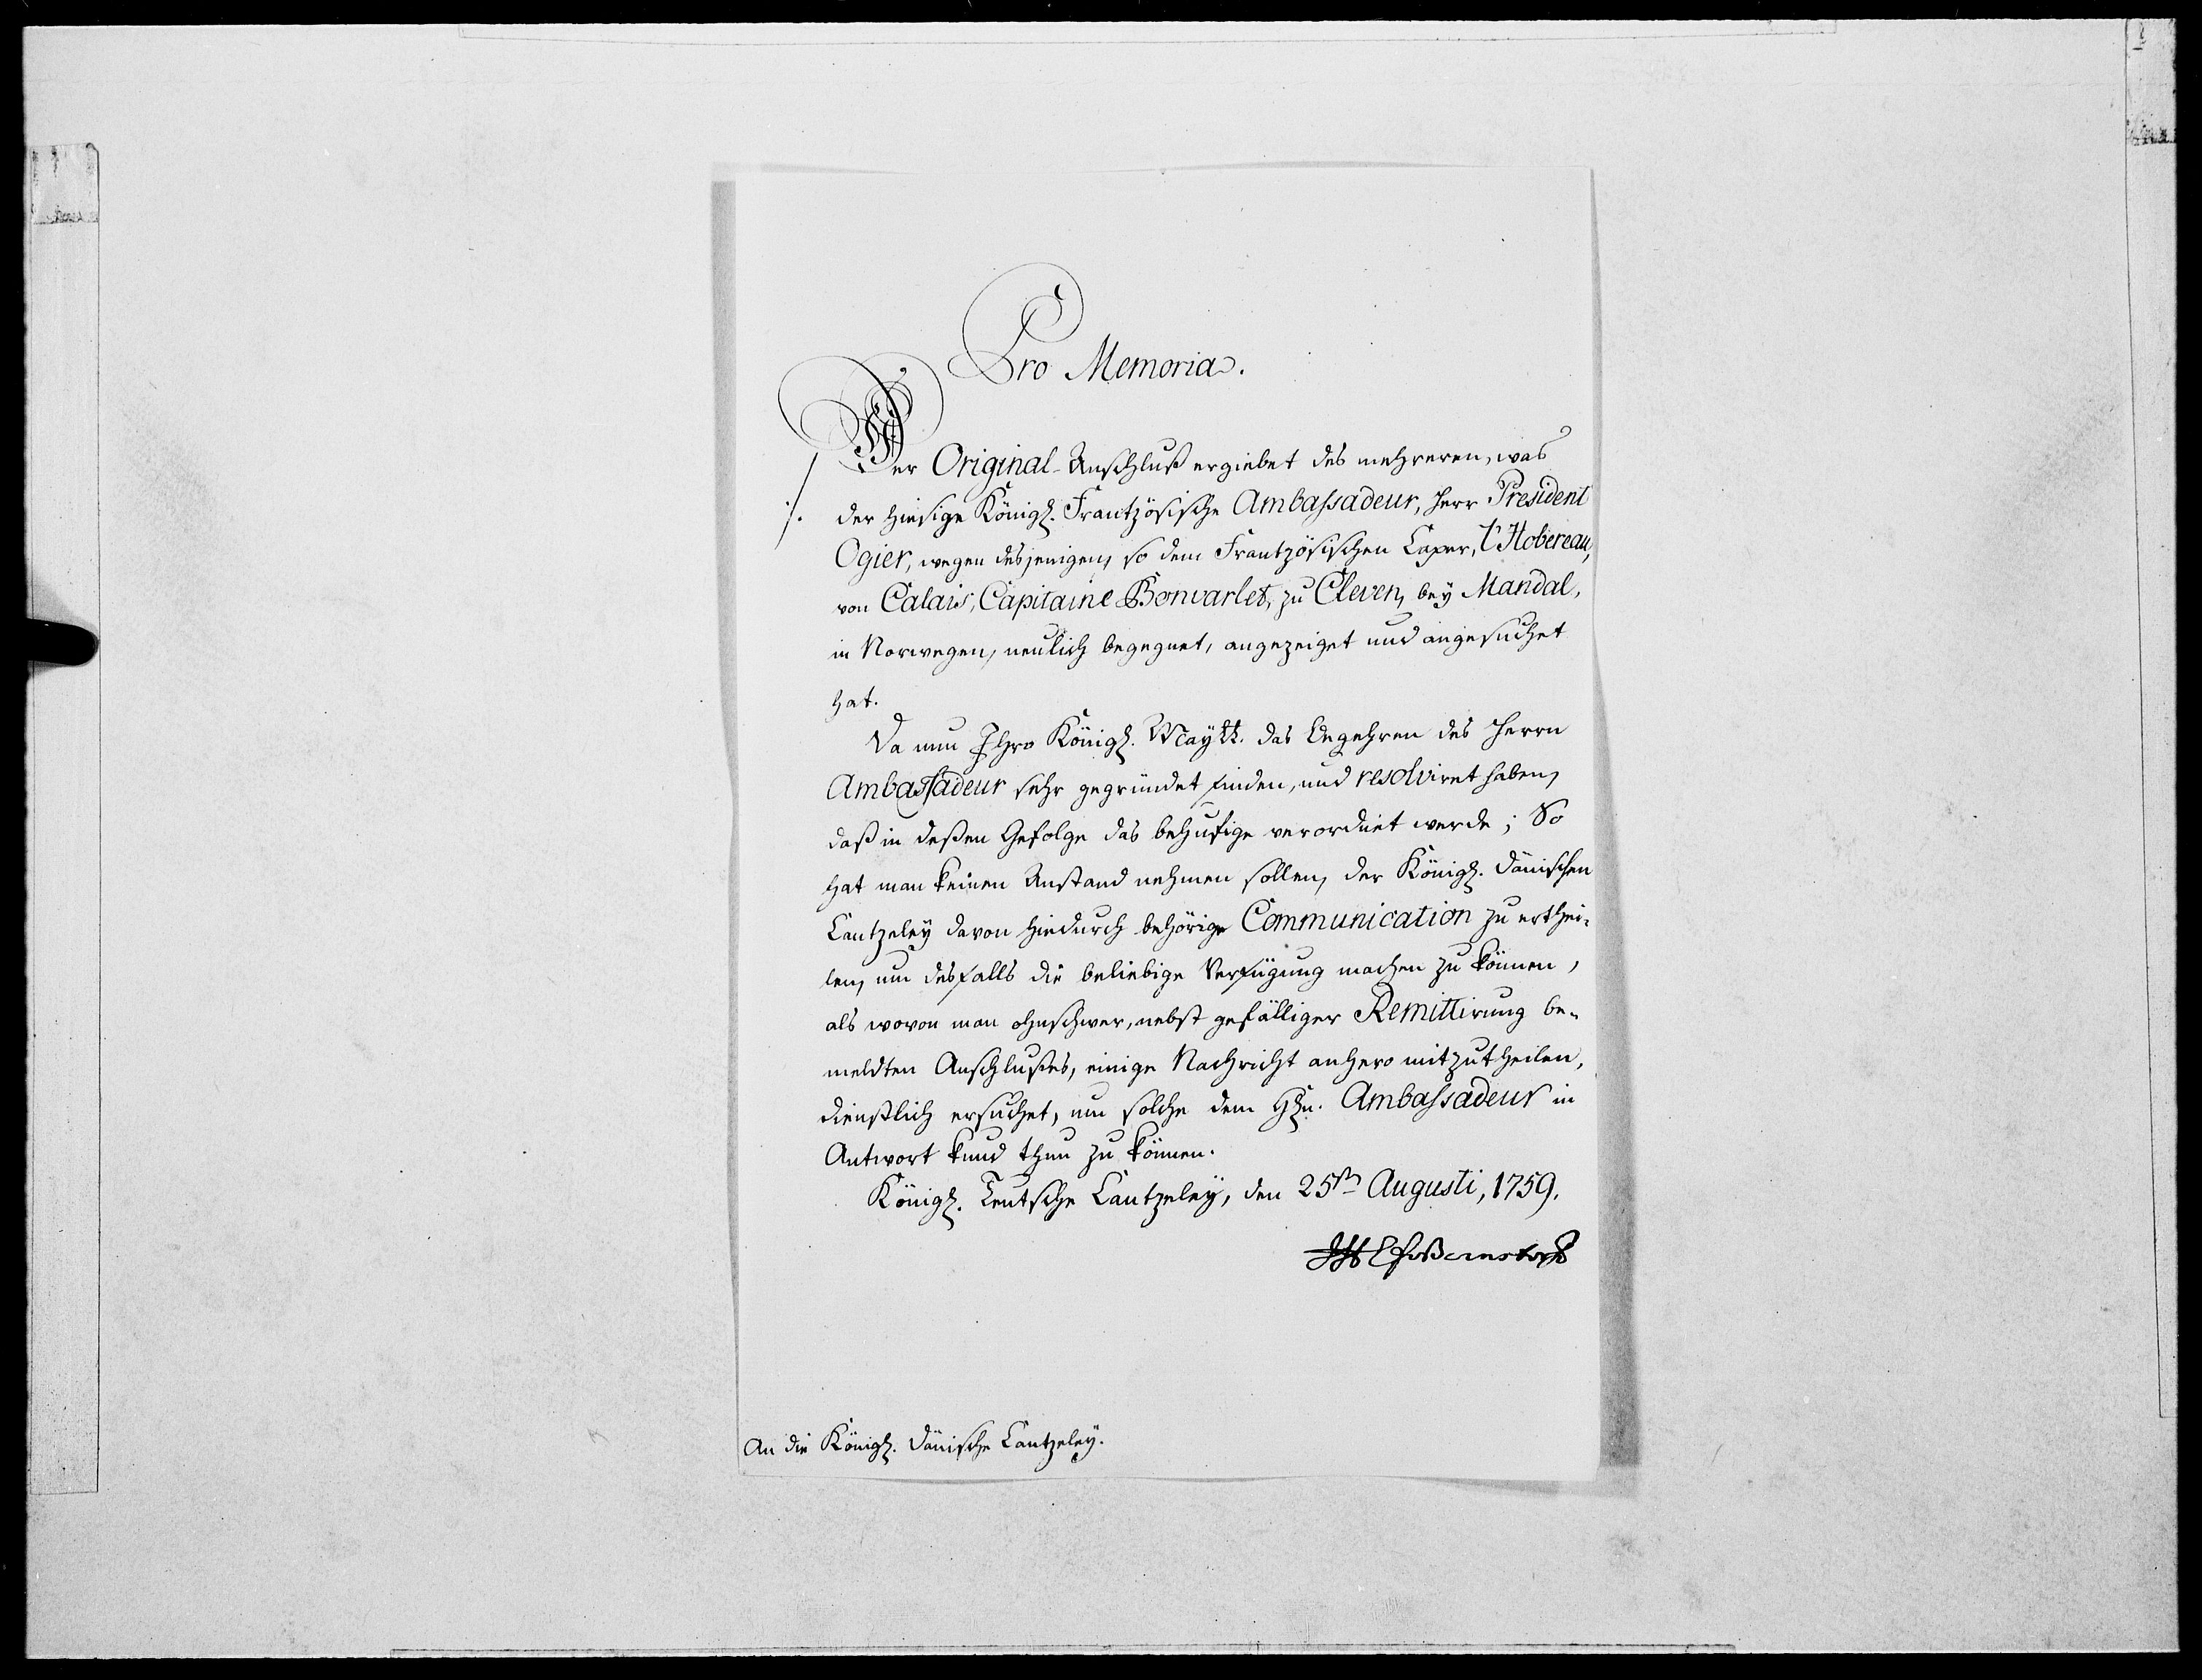 Pro Memoria.
Der Original-Anschluß ergiebet des mehreren, was
der hiesige Königl. Frantzösische Ambassadeur, Herr President
Ogier, wegen desjenigen, so dem Frantzösischen Caper, l'Hobereau,
von Calais, Capitaine Bonvarlet, zu Cleven, bey Mandal,
in Norwegen, neulich begegnet, angezeiget und angesuchet
hat.
Da nun Ihro Königl. Maytt. das Begehren des Herrn
Ambassadeur sehr gegründet finden, und resolviret haben,
daß in deßen Gefolge das behufige verordnet werde; So
hat man keinen Anstand nehmen sollen, der Königl. Dänischen
Cantzeley davon hiedurch behörige Communication zu erthei-
len, um desfalls die beliebige Verfügung machen zu können,
als wovon man ohnschwer, nebst gefälliger Remittirung be-
meldten Anschlußes, einige Nachricht anhero mitzutheilen,
dienstlich ersuchet, um solche dem Hhn. Ambassadeur in
Antwort kund thun zu können.
Königl. Teutsche Cantzeley, den 25ten Augusti, 1759.
JHEfvBernstorff
An die Königl. Dänische Cantzeley.